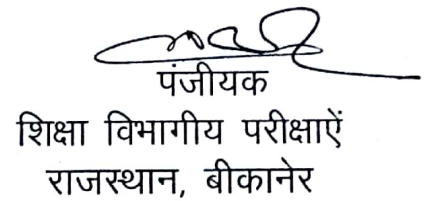 पंजीयक
शिक्षा विभागीय परीक्षाऐं
राजस्थान, बीकानेर